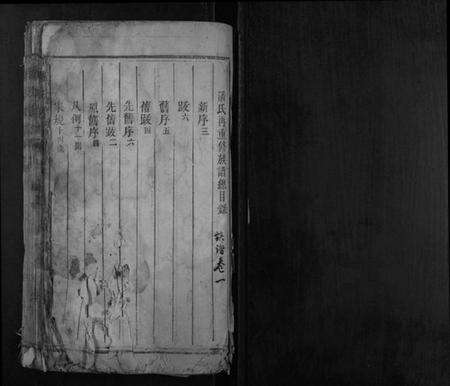 氏再重修族譜總目錄 族譜卷一
新序三
跋六
舊序五
舊跋四
先舊序六
先舊跋二
舊序四
凡例十一